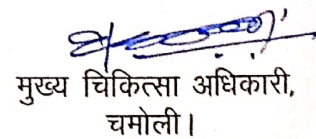 मुख्य चिकित्सा अधिकारी,
चमोली।